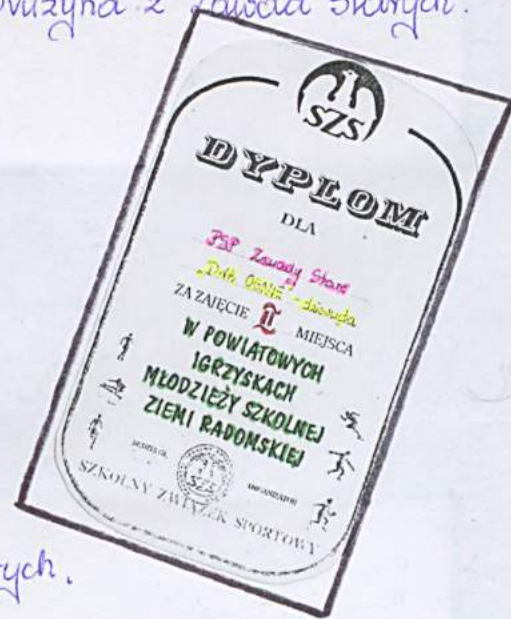 z Zawad Starych.
SZS
DYPLOM
DLA
PSP Zawady Stare
"Dwa OGNIE" - dziewczęta
ZA ZAJĘCIE II MIEJSCA
W POWIATOWYCH
IGRZYSKACH
MŁODZIEŻY SZKOLNEJ
ZIEMI RADOMSKIEJ
ORGANIZATOR
SZKOLNY ZWIĄZEK SPORTOWY